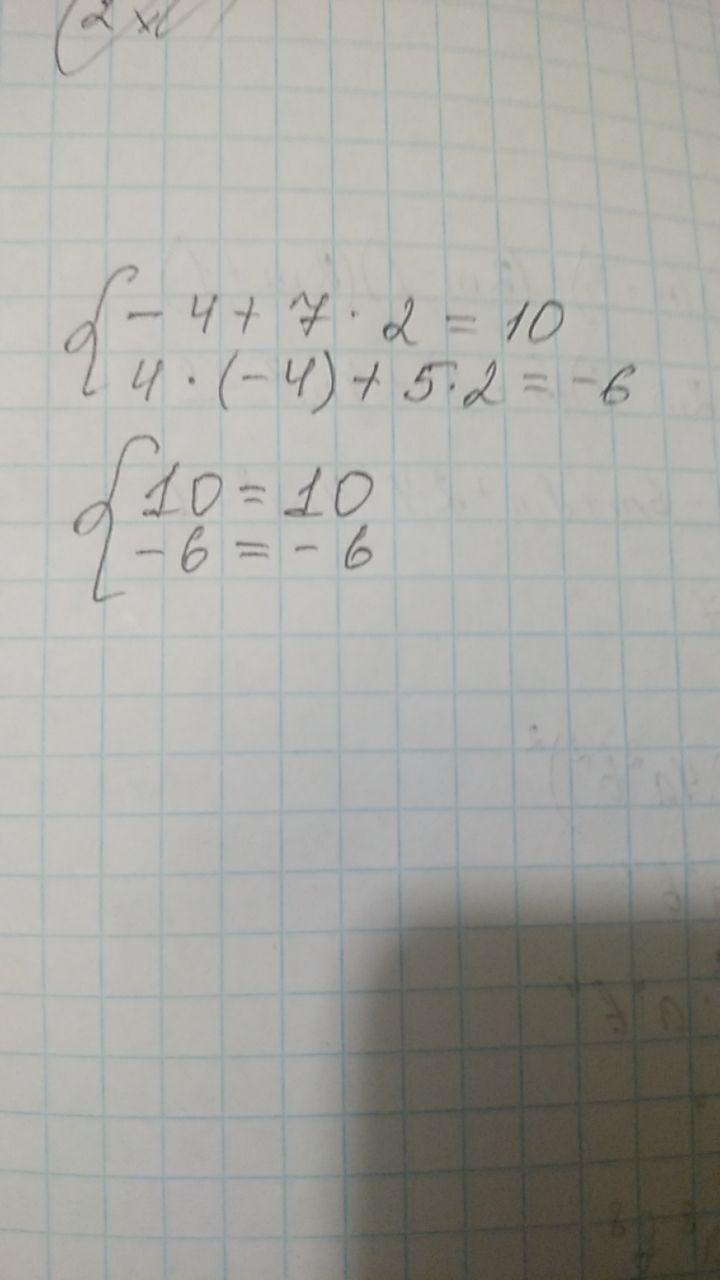 (2x
{-4+7·2=10
4·(-4)+5·2=-6
{10=10
-6=-6